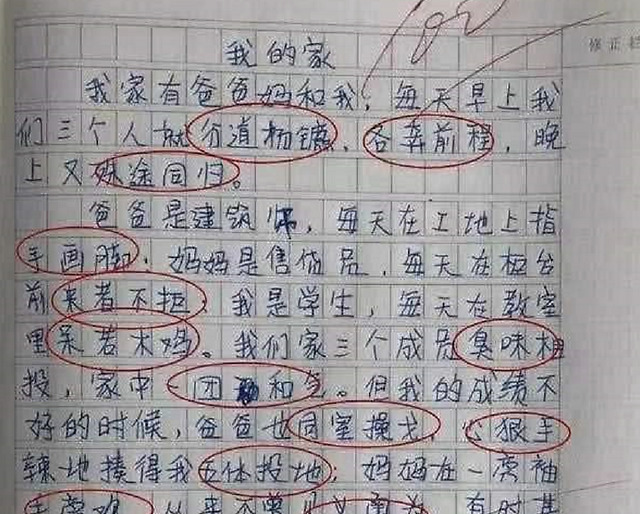 修正栏
我的家
我家有爸爸妈和我，每天早上我
们三个人就分道扬镳、各奔前程，晚
上又殊途同归。
爸爸是建筑师，每天在工地上指
手画脚；妈妈是售货员，每天在柜台
前来者不拒；我是学生，每天在教室
里呆若木鸡。我们家三个成员臭味相
投，家中一团和气。但我的成绩不
好的时候，爸爸也同室操戈，心狠手
辣地揍得我五体投地；妈妈在一旁袖